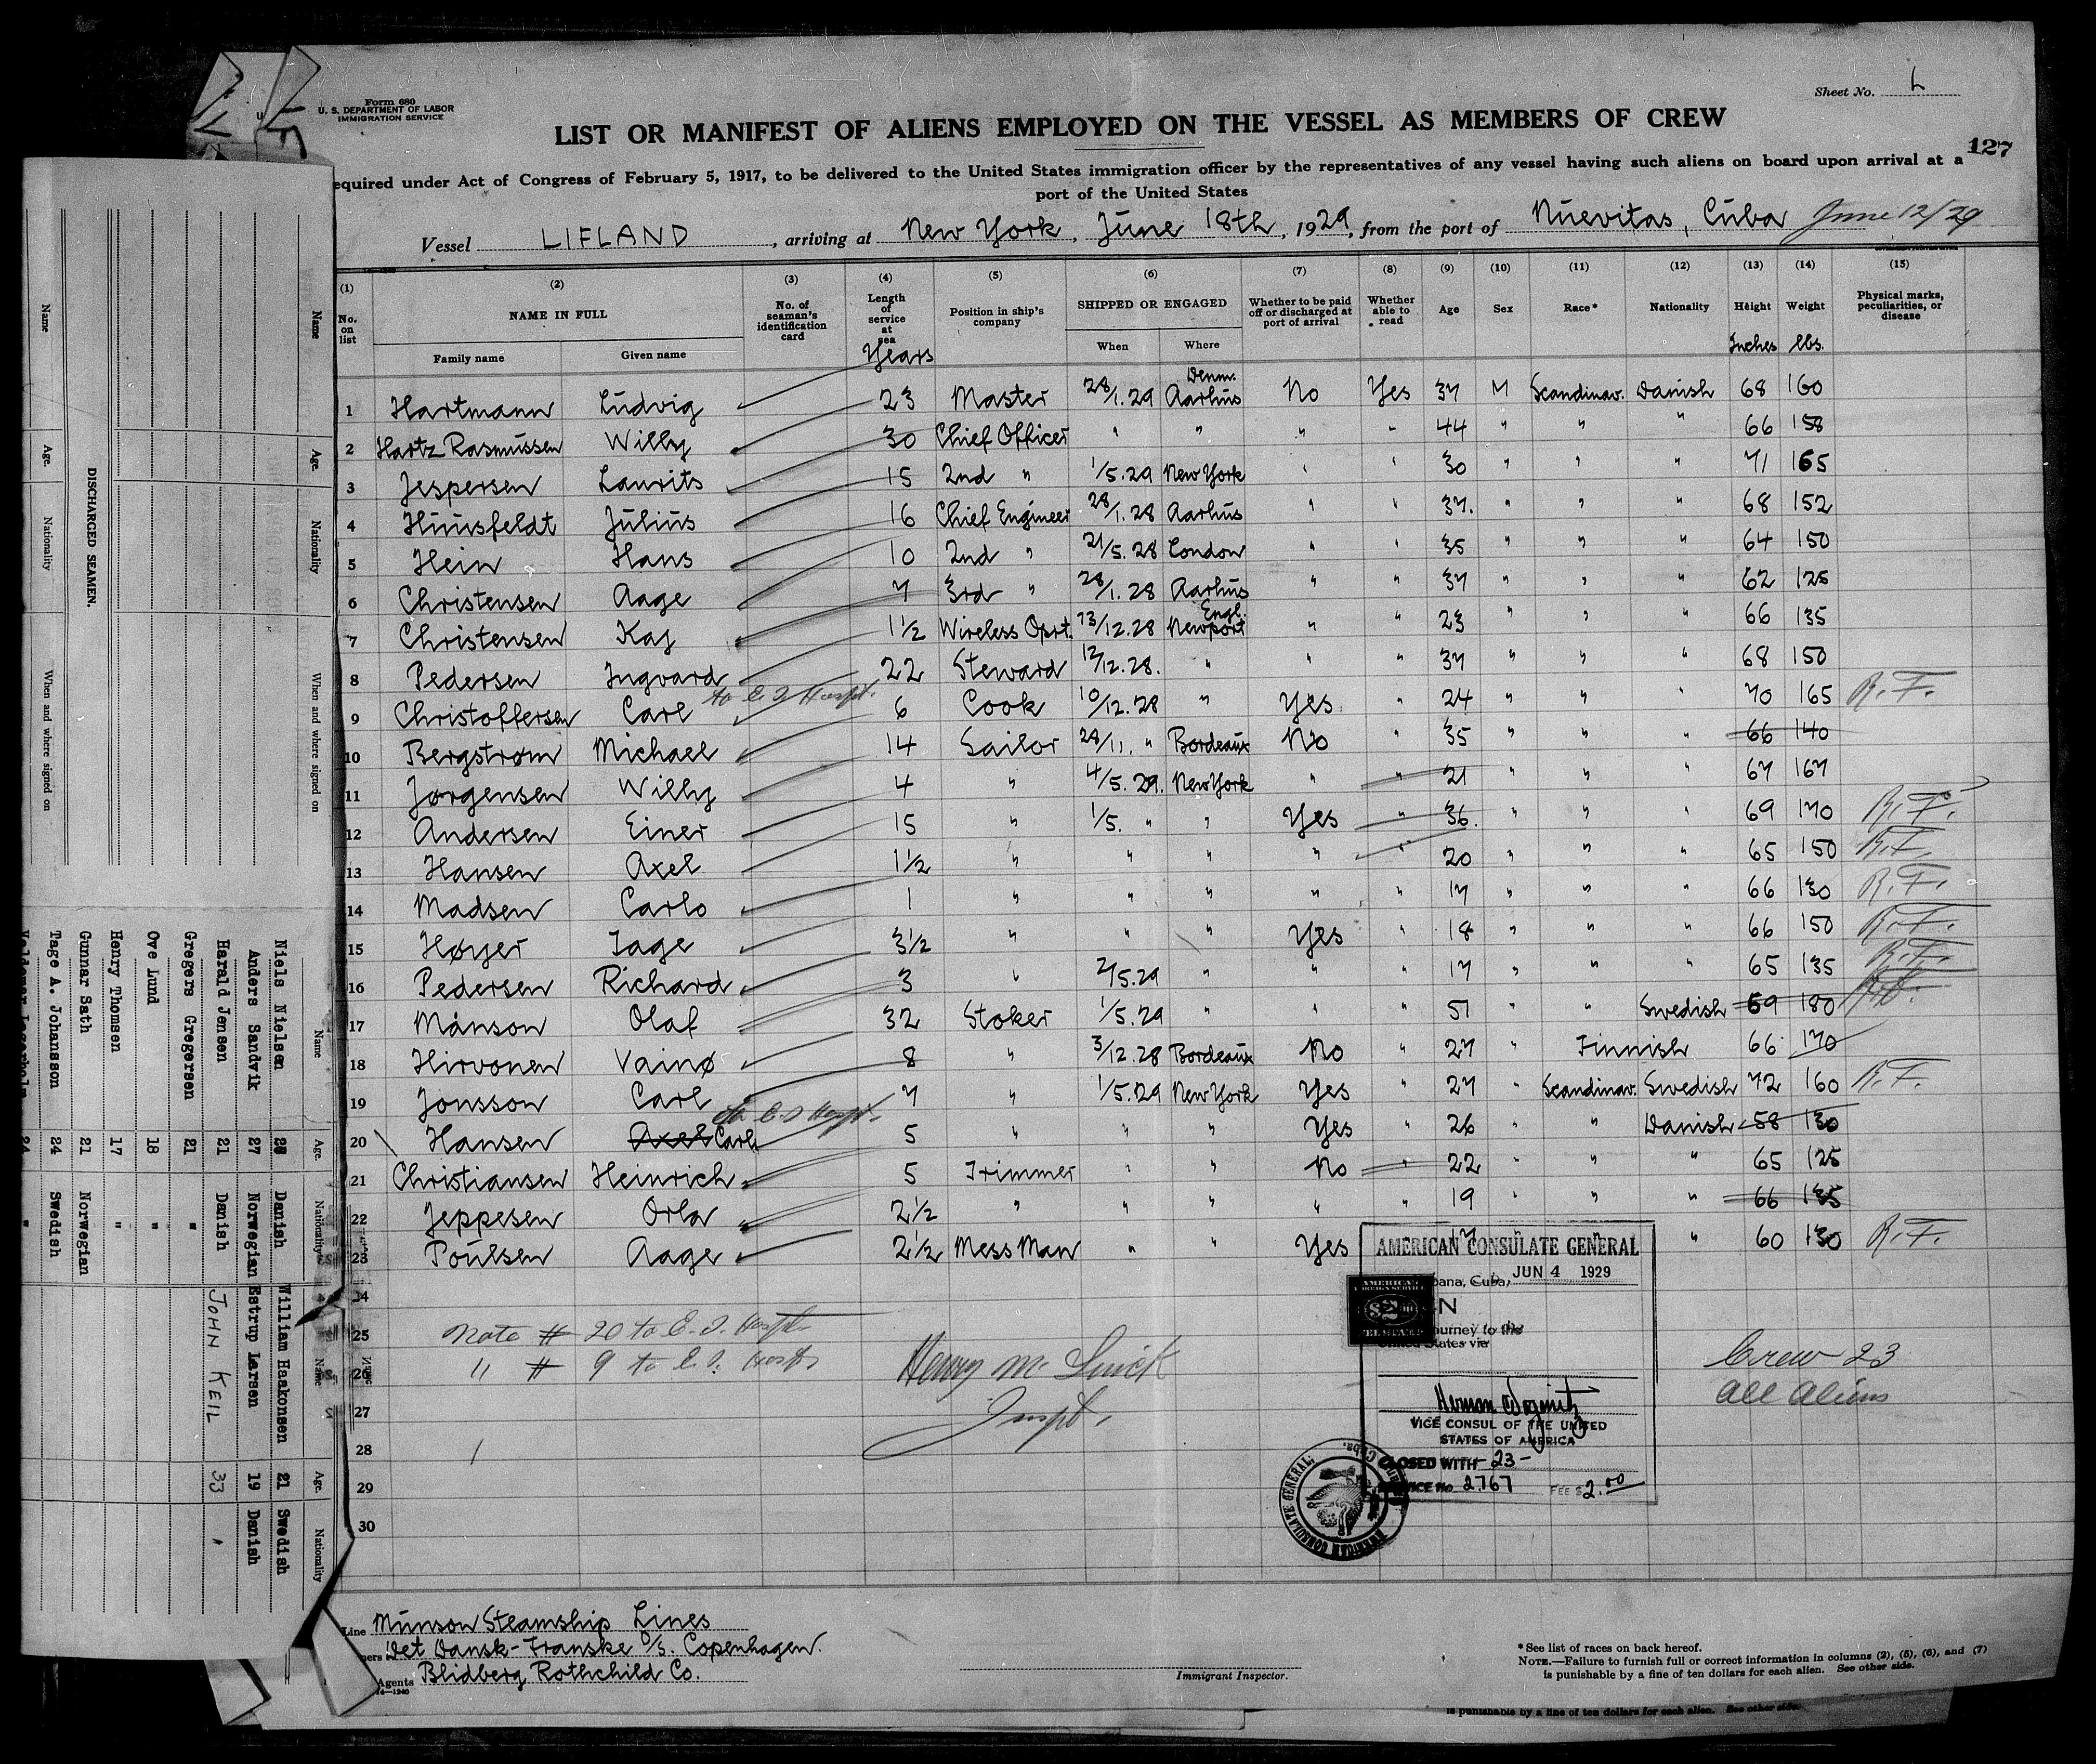 Form 680
U. S. DEPARTMENT OF LABOR
IMMIGRATION SERVICE
Sheet No. L
LIST OR MANIFEST OF ALIENS EMPLOYED ON THE VESSEL AS MEMBERS OF CREW
127
equired under Act of Congress of February 5, 1917, to be delivered to the United States immigration officer by the representatives of any vessel having such aliens on board upon arrival at a
port of the United States
Vessel LIFLAND, arriving at New York, June 18th, 1929, from the port of Nuevitas, Cuba June 12/29
(1) No. on list (2) NAME IN FULL Family name Given name (3) No. of seaman's identification card (4) Length of service at sea Years (5) Position in ship's company (6) SHIPPED OR ENGAGED When Where (7) Whether to be paid off or discharged at port of arrival (8) Whether able to read (9) Age (10) Sex (11) Race* (12) Nationality (13) Height Inches (14) Weight lbs. (15) Physical marks, peculiarities, or disease
1 Hartmann Ludvig 23 Master 28/1.29 Denm. Aarhus No Yes 37 M Scandinav. Danish 68 160
2 Hartz Rasmussen Willy 30 Chief Officer " " " " 44 " " " 66 158
3 Jespersen Laurits 15 2nd " 1/5.29 New York " " 30 " " " 71 165
4 Huusfeldt Julius 16 Chief Engineer 28/1.28 Aarhus " " 37. " " " 68 152
5 Hein Hans 10 2nd " 21/5.28 London " " 35 " " " 64 150
6 Christensen Aage 7 3rd " 28/1.28 Aarhus " " 37 " " " 62 125
7 Christensen Kaj 1½ Wireless Oprt. 13/12.28 Engl. Newport " " 23 " " " 66 135
8 Pedersen Ingvard 22 Steward 12/12.28. " " " 37 " " " 68 150
9 Christoffersen Carl to E.I Hospt. 6 Cook 10/12.28 " Yes " 24 " " " 70 165 R.F.
10 Bergstrøm Michael 14 Sailor 28/11. " Bordeaux No " 35 " " " 66 140
11 Jørgensen Willy 4 " 4/5.29. New York " " 21 " " " 67 167
12 Andersen Einer 15 " 1/5. " " Yes " 36. " " " 69 170 R.F.
13 Hansen Axel 1½ " " " " " 20 " " " 65 150 R.F.
14 Madsen Carlo 1 " " " " " 17 " " " 66 130 R.F.
15 Høyer Tage 3½ " " " Yes " 18 " " " 66 150 R.F.
16 Pedersen Richard 3 " 2/5.29 " " " 17 " " " 65 135 R.F.
17 Månson Olaf 32 Stoker 1/5.29 " " " 51 " " Swedish 69 180
18 Hirvonen Vainø 8 " 3/12.28 Bordeaux No " 27 " Finnish 66 170
19 Jonsson Carl 7 " 1/5.29 New York Yes " 27 " Scandinav. Swedish 72 160 R.F.
20 Hansen Axel Carl to E.I Hospt. 5 " " " Yes " 26 " " Danish 58 130
21 Christiansen Heinrich 5 Trimmer " " No " 22 " " " 65 125
22 Jeppesen Orla 2½ " " " " " 19 " " " 66 135
23 Poulsen Aage 2½ Mess Man " " Yes 17 " " 60 130 R.F.
24
25 Note # 20 to E.I. Hospt.
26 " # 9 to E.I. Hospt.
27
28
29
30
Inspt.
Crew 23
All Aliens
AMERICAN CONSULATE GENERAL
bana, Cuba, JUN 4 1929
AMERICAN
FOREIGN SERVICE
$2.00
ourney to the
United States via
VICE CONSUL OF THE UNITED
STATES OF AMERICA
CLOSED WITH -23-
VICE No. 2767 FEE $2.00
AMERICAN CONSULATE GENERAL
Line Munson Steamship Lines
ners Det Dansk-Franske D/S. Copenhagen.
Agents Blidberg Rothchild Co.
14—1240
Immigrant Inspector.
* See list of races on back hereof.
NOTE.—Failure to furnish full or correct information in columns (2), (5), (6), and (7)
is punishable by a fine of ten dollars for each alien. See other side.
is punishable by a fine of ten dollars for each alien. See other side.
DISCHARGED SEAMEN.
Name Age. Nationality When and where signed on
Name Age. Nationality When and where signed on
Name Age. Nationality Name Age. Nationality
Niels Nielsen 25 Danish William Haakonsen 21 Swedish
Anders Sandvik 27 Norwegian Estrup Larsen 19 Danish
Harald Jensen 21 Danish JOHN KEIL 33 "
Gregers Gregersen 21 "
Ove Lund 18 "
Henry Thomsen 17 "
Gunnar Sath 21 Norwegian
Tage A. Johansson 24 Swedish